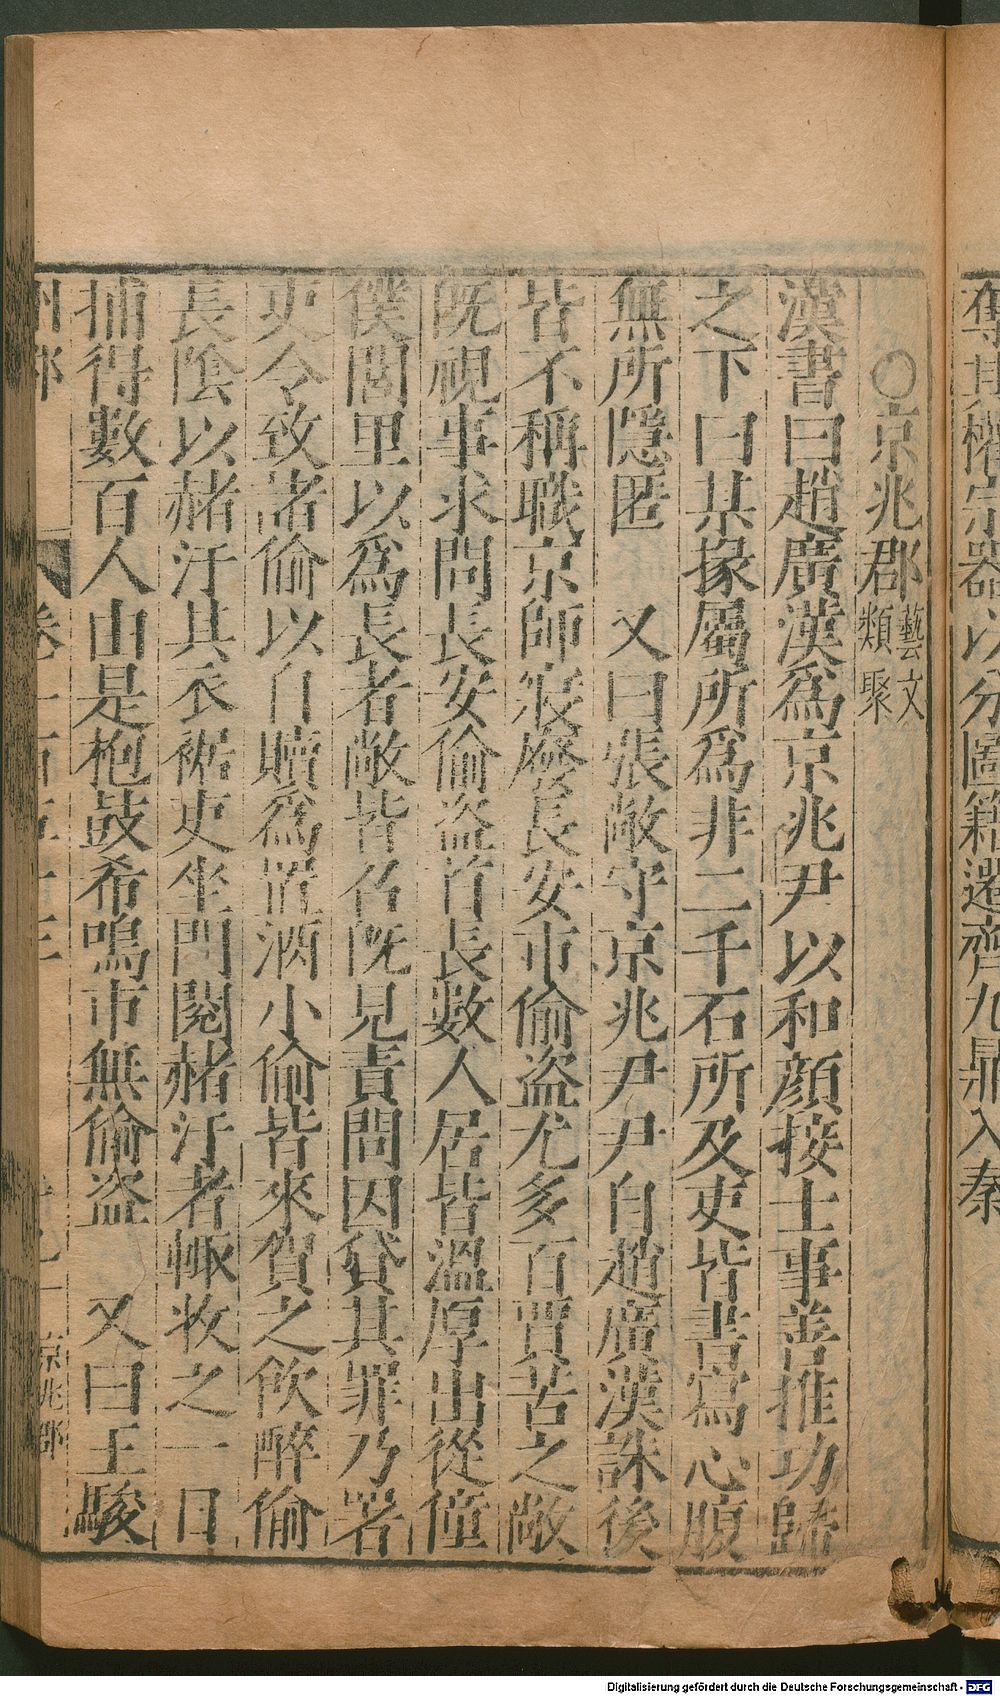 奪其權宗器以分圖籍遷齊九鼎入秦
○京兆郡藝文類聚
漢書曰趙廣漢爲京兆尹以和顔接士事善推功歸
之下曰某掾屬所爲非二千石所及吏皆書寫心腹
無所隱匿 又曰張敞守京兆尹尹自趙廣漢誅後
皆不稱職京師寖廢長安市偷盗尤多百賈苦之敞
既視事求問長安偷盗首長數人居皆溫厚出從僮
僕閭里以爲長者敞皆召既見責問因貸其罪乃署
吏令致諸偷以自贖爲置酒小偷皆來賀之飲醉偷
長陰以赭汙其衣裾吏坐門閱赭汙者輙收之一日
捕得數百人由是枹鼓希鳴市無偷盗 又曰王駿
州郡 卷一百 京兆郡
Digitalisierung gefördert durch die Deutsche Forschungsgemeinschaft - DFG